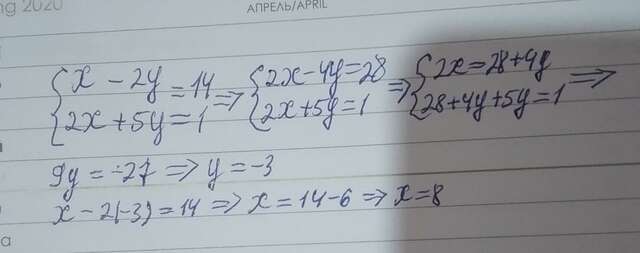 ng 2020 АПРЕЛЬ/APRIL
{x - 2y = 14 => {2x - 4y = 28 => {2x = 28 + 4y =>
{2x + 5y = 1 {2x + 5y = 1 {28 + 4y + 5y = 1
9y = -27 => y = -3
x - 2(-3) = 14 => x = 14 - 6 => x = 8